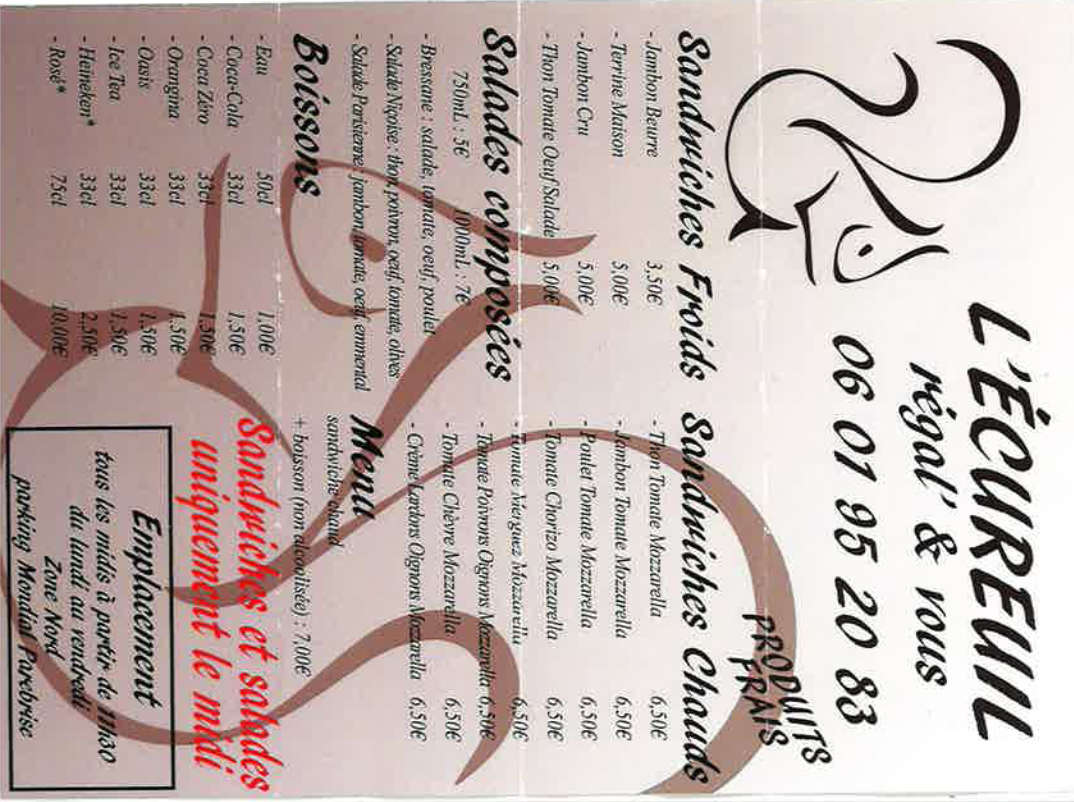 L'ÉCUREUIL
régal' & vous
06 01 95 20 83
PRODUITS
FRAIS
Sandwiches Froids
- Jambon Beurre 3,50€
- Terrine Maison 5,00€
- Jambon Cru 5,00€
- Thon Tomate Oeuf Salade 5,00€
Salades composées
750mL : 5€ 1000mL : 7€
- Bressane : salade, tomate, oeuf, poulet
- Salade Niçoise : thon, poivron, oeuf, tomate, olives
- Salade Parisienne : jambon, tomate, oeuf, emmental
Boissons
- Eau 50cl 1,00€
- Coca-Cola 33cl 1,50€
- Coca Zéro 33cl 1,50€
- Orangina 33cl 1,50€
- Oasis 33cl 1,50€
- Ice Tea 33cl 1,50€
- Heineken* 33cl 2,50€
- Rosé* 75cl 10,00€
Sandwiches Chauds
- Thon Tomate Mozzarella 6,50€
- Jambon Tomate Mozzarella 6,50€
- Poulet Tomate Mozzarella 6,50€
- Tomate Chorizo Mozzarella 6,50€
- Tomate Merguez Mozzarella 6,50€
- Tomate Poivrons Oignons Mozzarella 6,50€
- Tomate Chèvre Mozzarella 6,50€
- Crème Lardons Oignons Mozzarella 6,50€
Menu
sandwiche chaud
+ boisson (non alcoolisée) : 7,00€
Sandwiches et salades
uniquement le midi
Emplacement
tous les midis à partir de 11h30
du lundi au vendredi
Zone Nord
parking Mondial Parebrise